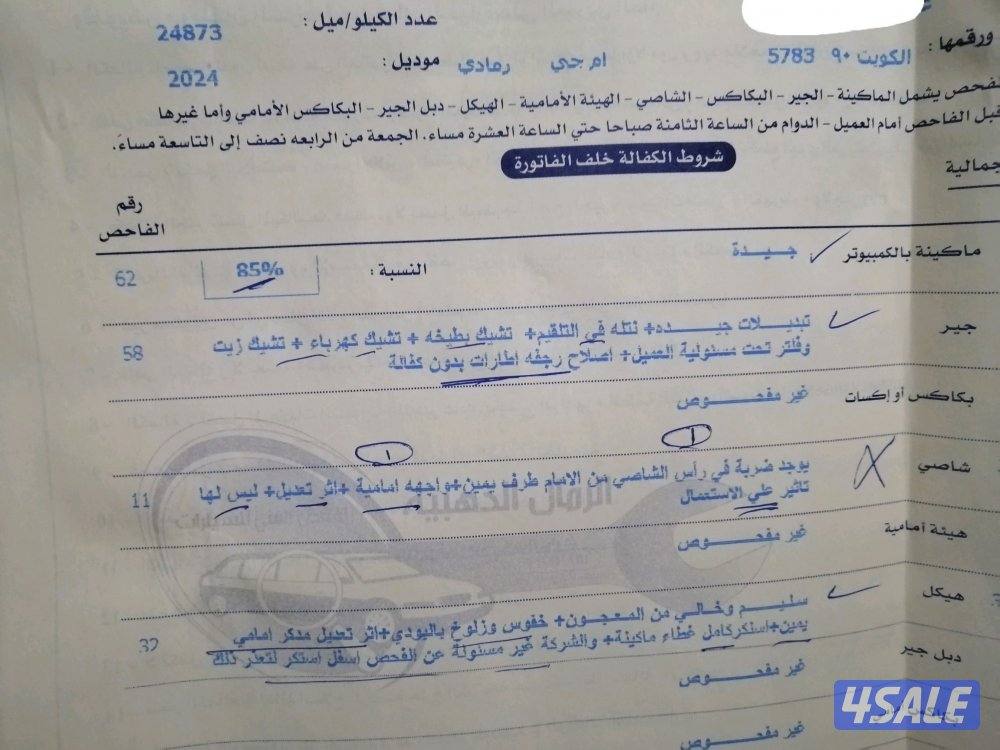 عدد الكيلو/ميل: 24873
ورقمها: الكويت ٩٠ 5783 ام جي رمادي موديل: 2024
لفحص يشمل الماكينة - الجير - البكاكس - الشاصي - الهيئة الأمامية - الهيكل - دبل الجير - البكاكس الأمامي وأما غيرها
قبل الفاحص أمام العميل - الدوام من الساعة الثامنة صباحا حتي الساعة العشرة مساء. الجمعة من الرابعه نصف إلى التاسعة مساءً.
شروط الكفالة خلف الفاتورة
جمالية
رقم
الفاحص
ماكينة بالكمبيوتر جيدة النسبة: 85% 62
جير
تبديلات جيده+ نتله في التلقيم+ تشيك بطيخه + تشيك كهرباء + تشيك زيت
وفلتر تحت مسئولية العميل+ اصلاح رجفه اطارات بدون كفالة
58
بكاكس أو إكسات غير مفحوص
1 1
شاصي
يوجد ضربة في رأس الشاصي من الامام طرف يمين+و اجهه امامية +اثر تعديل+ ليس لها
تاثير علي الاستعمال
11
الرمال الذهبية
هيئة أمامية غير مفحوص
هيكل
سليم وخالي من المعجون+ خفوس وزلوخ بالبودي+اثر تعديل مدكر امامي
يمين+استكركامل غطاء ماكينة+ والشركة غير مسئولة عن الفحص اسفل استكر لتعذر ذلك
32
دبل جير غير مفحوص
غير مفحوص
4SALE